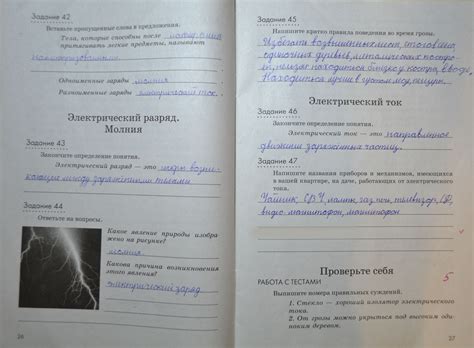 Задание 42
Вставьте пропущенные слова в предложения.
Тела, которые способны после
притягивать легкие предметы, называют
наэлектризованными.
Одноименные заряды молния
Разноименные заряды электрический ток.
Электрический разряд.
Молния
Задание 43
Закончите определение понятия.
Электрический разряд — это искры возни-
кающие между заряженными телами.
Задание 44
Ответьте на вопросы.
Какое явление природы изобра
жено на рисунке?
молния.
Какова причина возникновения
этого явления?
электрический заряд.
26
Задание 45
Напишите кратко правила поведения во время грозы.
Избегать возвышенных мест,
одиночных деревьев, металических построек
нельзя находиться близко у костра, в воде,
Находиться лучше в сухом под пещеры.
Электрический ток
Задание 46
Закончите определение понятия.
Электрический ток — это направленное
движение заряженных частиц.
Задание 47
Напишите названия приборов и механизмов, имеющихся
в вашей квартире, на даче, работающих от электрического
тока.
Чайник, СВЧ, лампы, газ. печь, телевизор,
видео. магнитофон, магнитофон
Проверьте себя
5
РАБОТА С ТЕСТАМИ
Выпишите номера правильных суждений.
1. Стекло — хороший изолятор электрического
тока.
2. От грозы можно укрыться под высоким оди
ноким деревом.
27